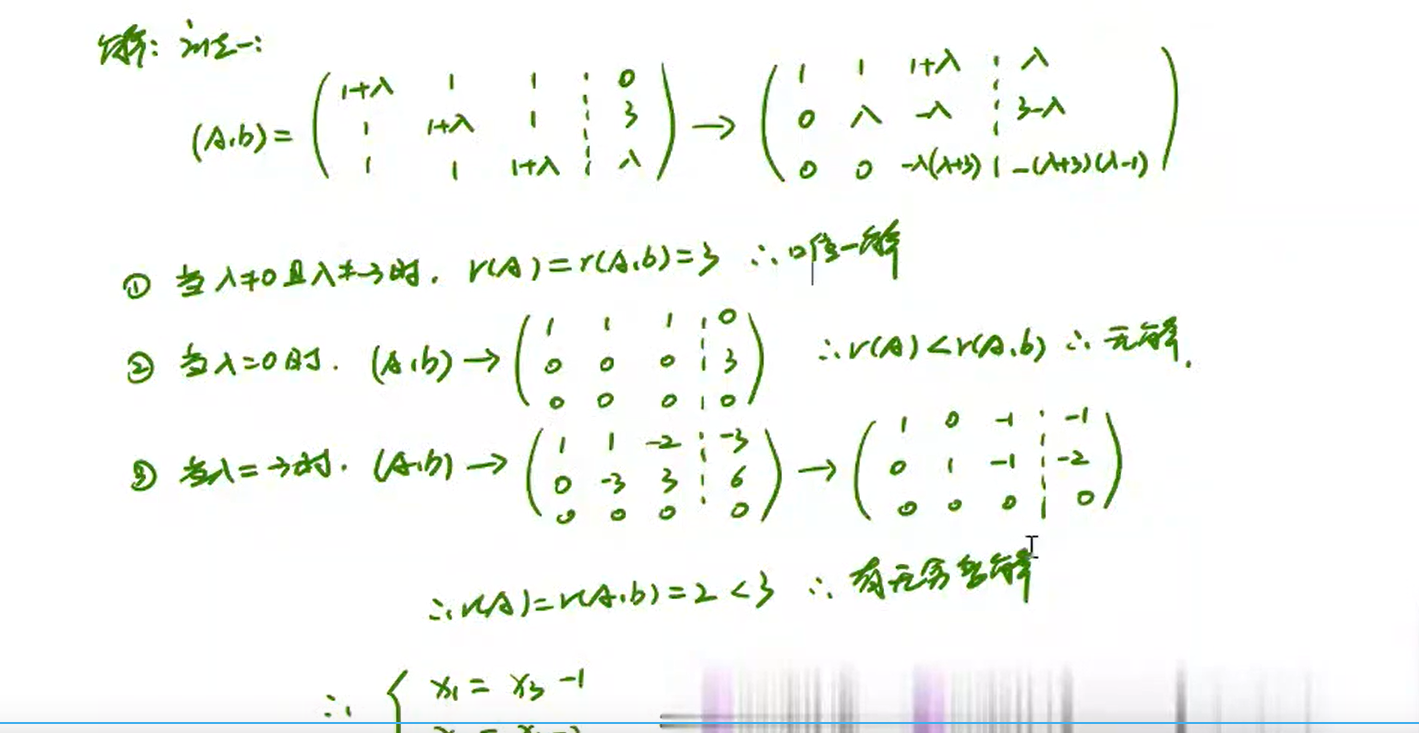 解: 法一:
(A,b)= ( 1+λ 1 1 ¦ 0 ; 1 1+λ 1 ¦ 3 ; 1 1 1+λ ¦ λ ) → ( 1 1 1+λ ¦ λ ; 0 λ -λ ¦ 3-λ ; 0 0 -λ(λ+3) ¦ -(λ+3)(λ-1) )
① 当λ≠0且λ≠-3时. r(A)=r(A,b)=3 ∴唯一解
② 当λ=0时. (A,b) → ( 1 1 1 ¦ 0 ; 0 0 0 ¦ 3 ; 0 0 0 ¦ 0 ) ∴r(A)<r(A,b) ∴无解.
③ 当λ=-3时. (A,b) → ( 1 1 -2 ¦ -3 ; 0 -3 3 ¦ 6 ; 0 0 0 ¦ 0 ) → ( 1 0 -1 ¦ -1 ; 0 1 -1 ¦ -2 ; 0 0 0 ¦ 0 )
∴r(A)=r(A,b)=2<3 ∴有无穷多解
∴ { x₁ = x₃ -1